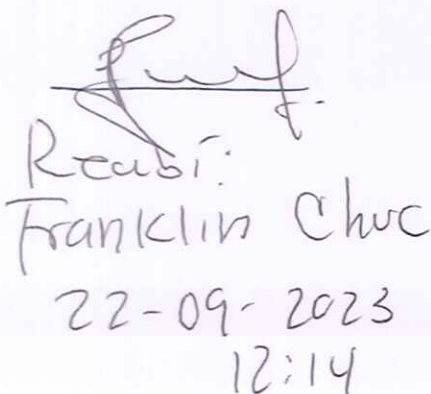 Recibí:
Franklin Chuc
22-09-2023
12:14